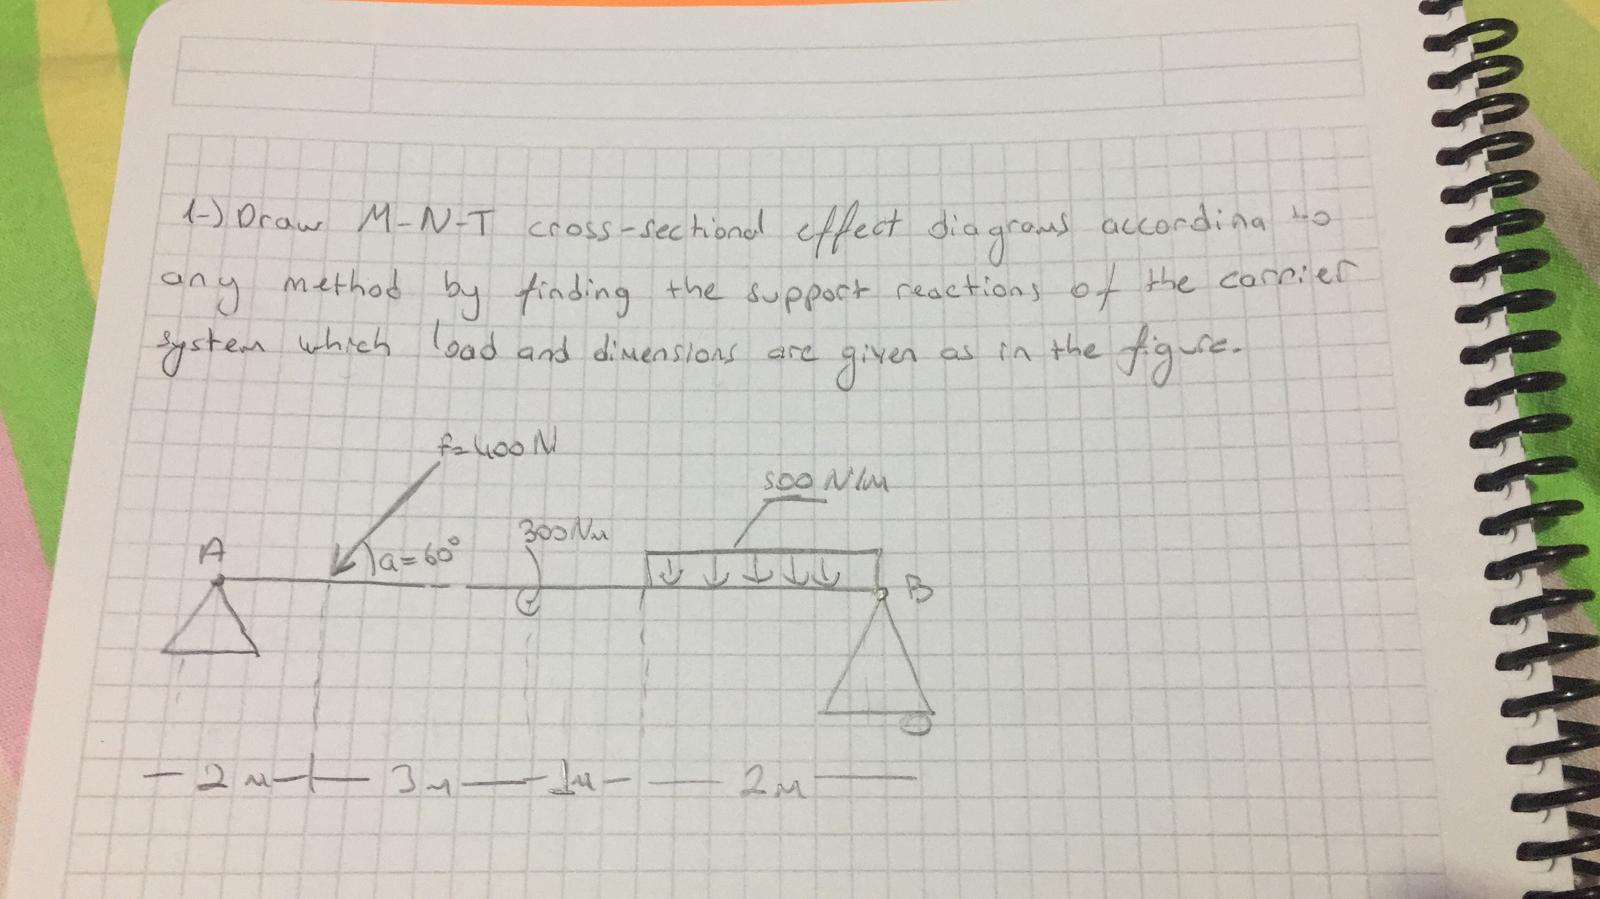 1-) Draw M-N-T cross-sectional effect diagrams accordina to
any method by finding the support reactions of the carrier
system which load and dimensions are given as in the figure.
f=400N
500 N/m
300Nm
A
a=60°
B
2m 3m 1m 2m